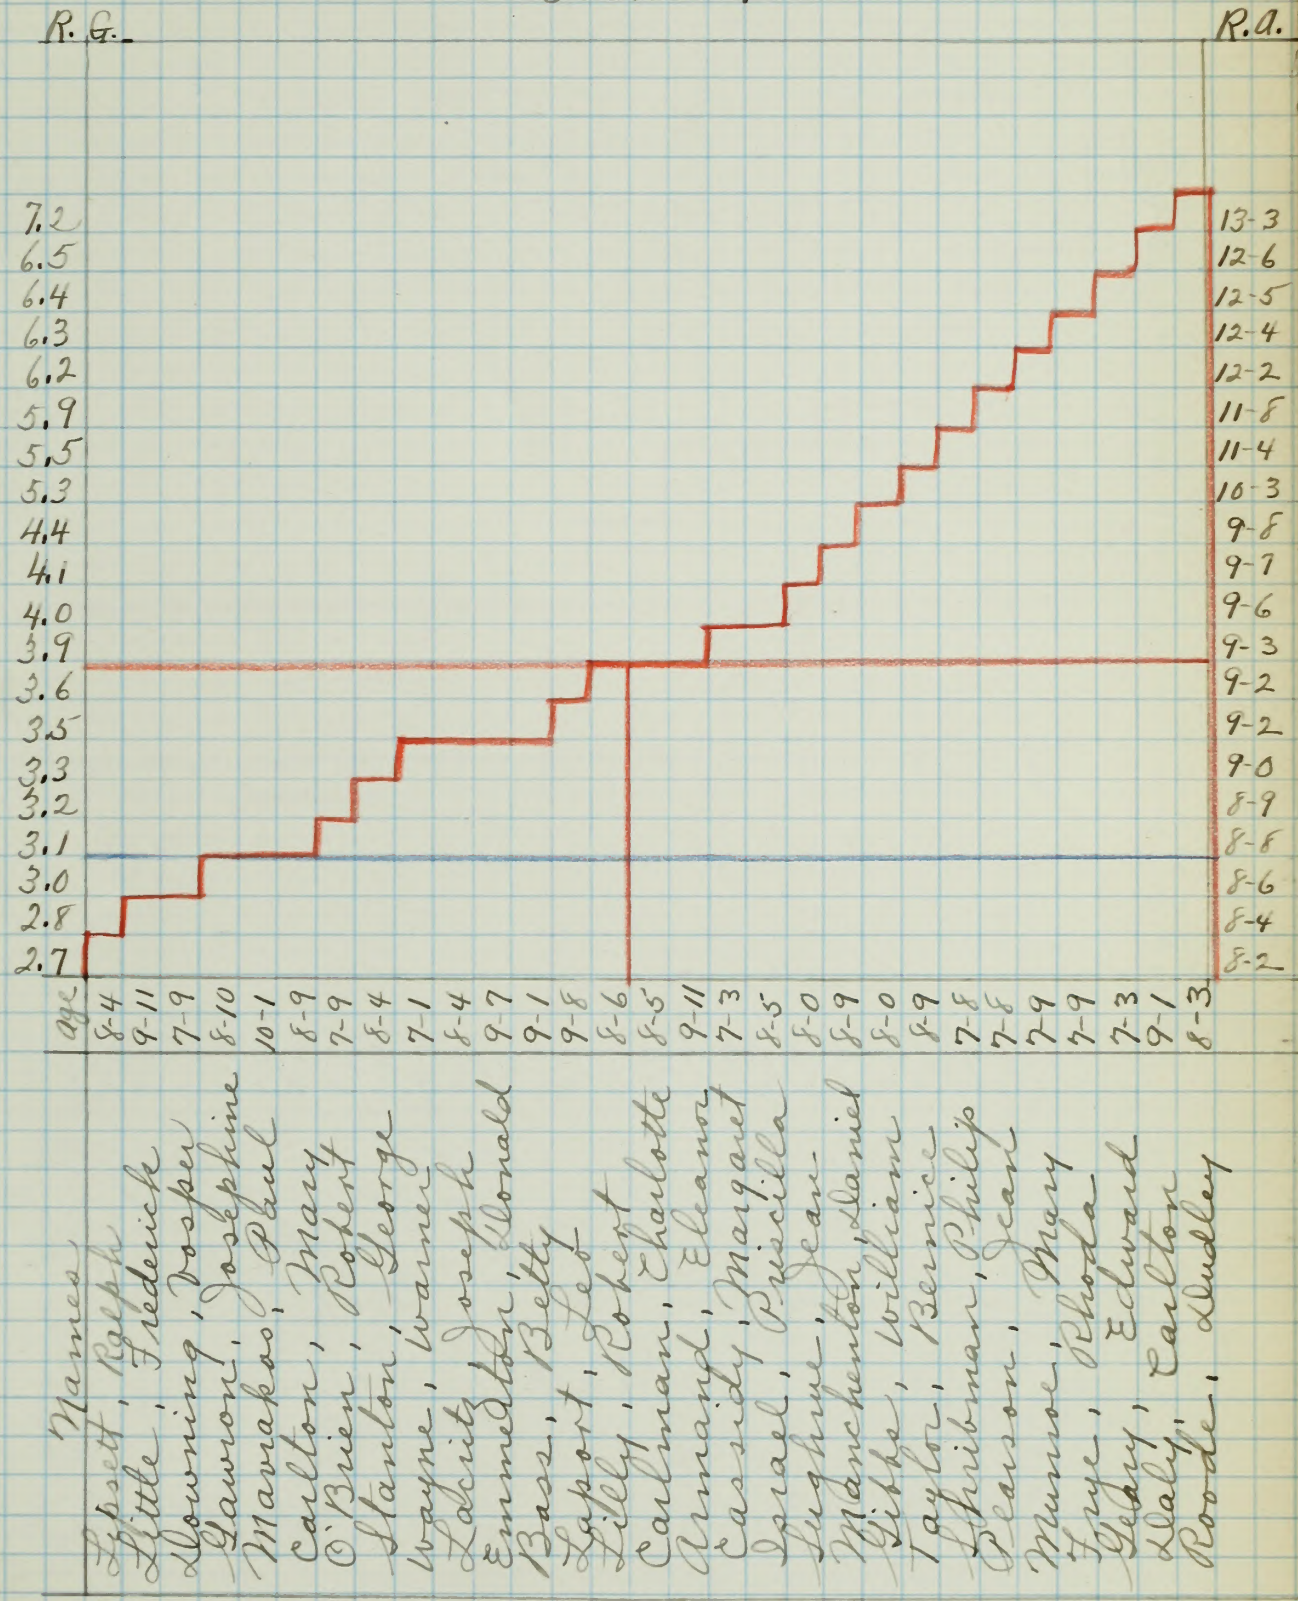 R.G. R.A.
7.2 13-3
6.5 12-6
6.4 12-5
6.3 12-4
6.2 12-2
5.9 11-8
5.5 11-4
5.3 10-3
4.4 9-8
4.1 9-7
4.0 9-6
3.9 9-3
3.6 9-2
3.5 9-2
3.3 9-0
3.2 8-9
3.1 8-8
3.0 8-6
2.8 8-4
2.7 8-2
Names age
Lipsett, Ralph 8-4
Little, Frederick 9-11
Downing, Vosper 7-9
Gawron, Josephine 8-10
Mavrakos, Paul 10-1
Carlton, Mary 8-9
O'Brien, Robert 7-9
Stanton, George 8-4
Wayne, Warner 7-1
Joseph 8-4
Donald 9-7
Bass, Betty 9-1
Laport, Leo 9-8
Lilly, Robert 8-6
Carlman, Charlotte 8-5
Armand, Eleanor 9-11
Cassidy, Margaret 7-3
Israel, Priscilla 8-5
Sughrue, Jean 8-0
Manchenton, Daniel 8-9
Gibbs, William 8-0
Taylor, Bernice 8-9
Shribman, Philip 7-8
Pearson, Jean 7-8
Munroe, Mary 7-9
Frye, Rhoda 7-9
Geary, Edward 7-3
Daly, Carlton 9-1
Roode, Dudley 8-3